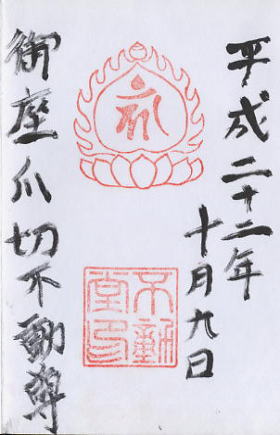 平成二十二年
十月九日
不動
堂印
御座爪切不動尊